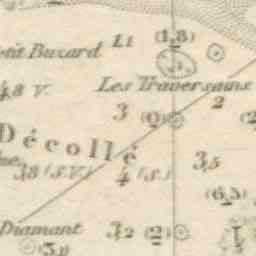 Petit Buzard 11 (1,8)
4,8 V.
Les Traversains
3 (0) 2
Décollé
3,8 (S.V.) 4 (S.) 3,5
(6,5)
Diamant 3,2 (2)
(3,1)